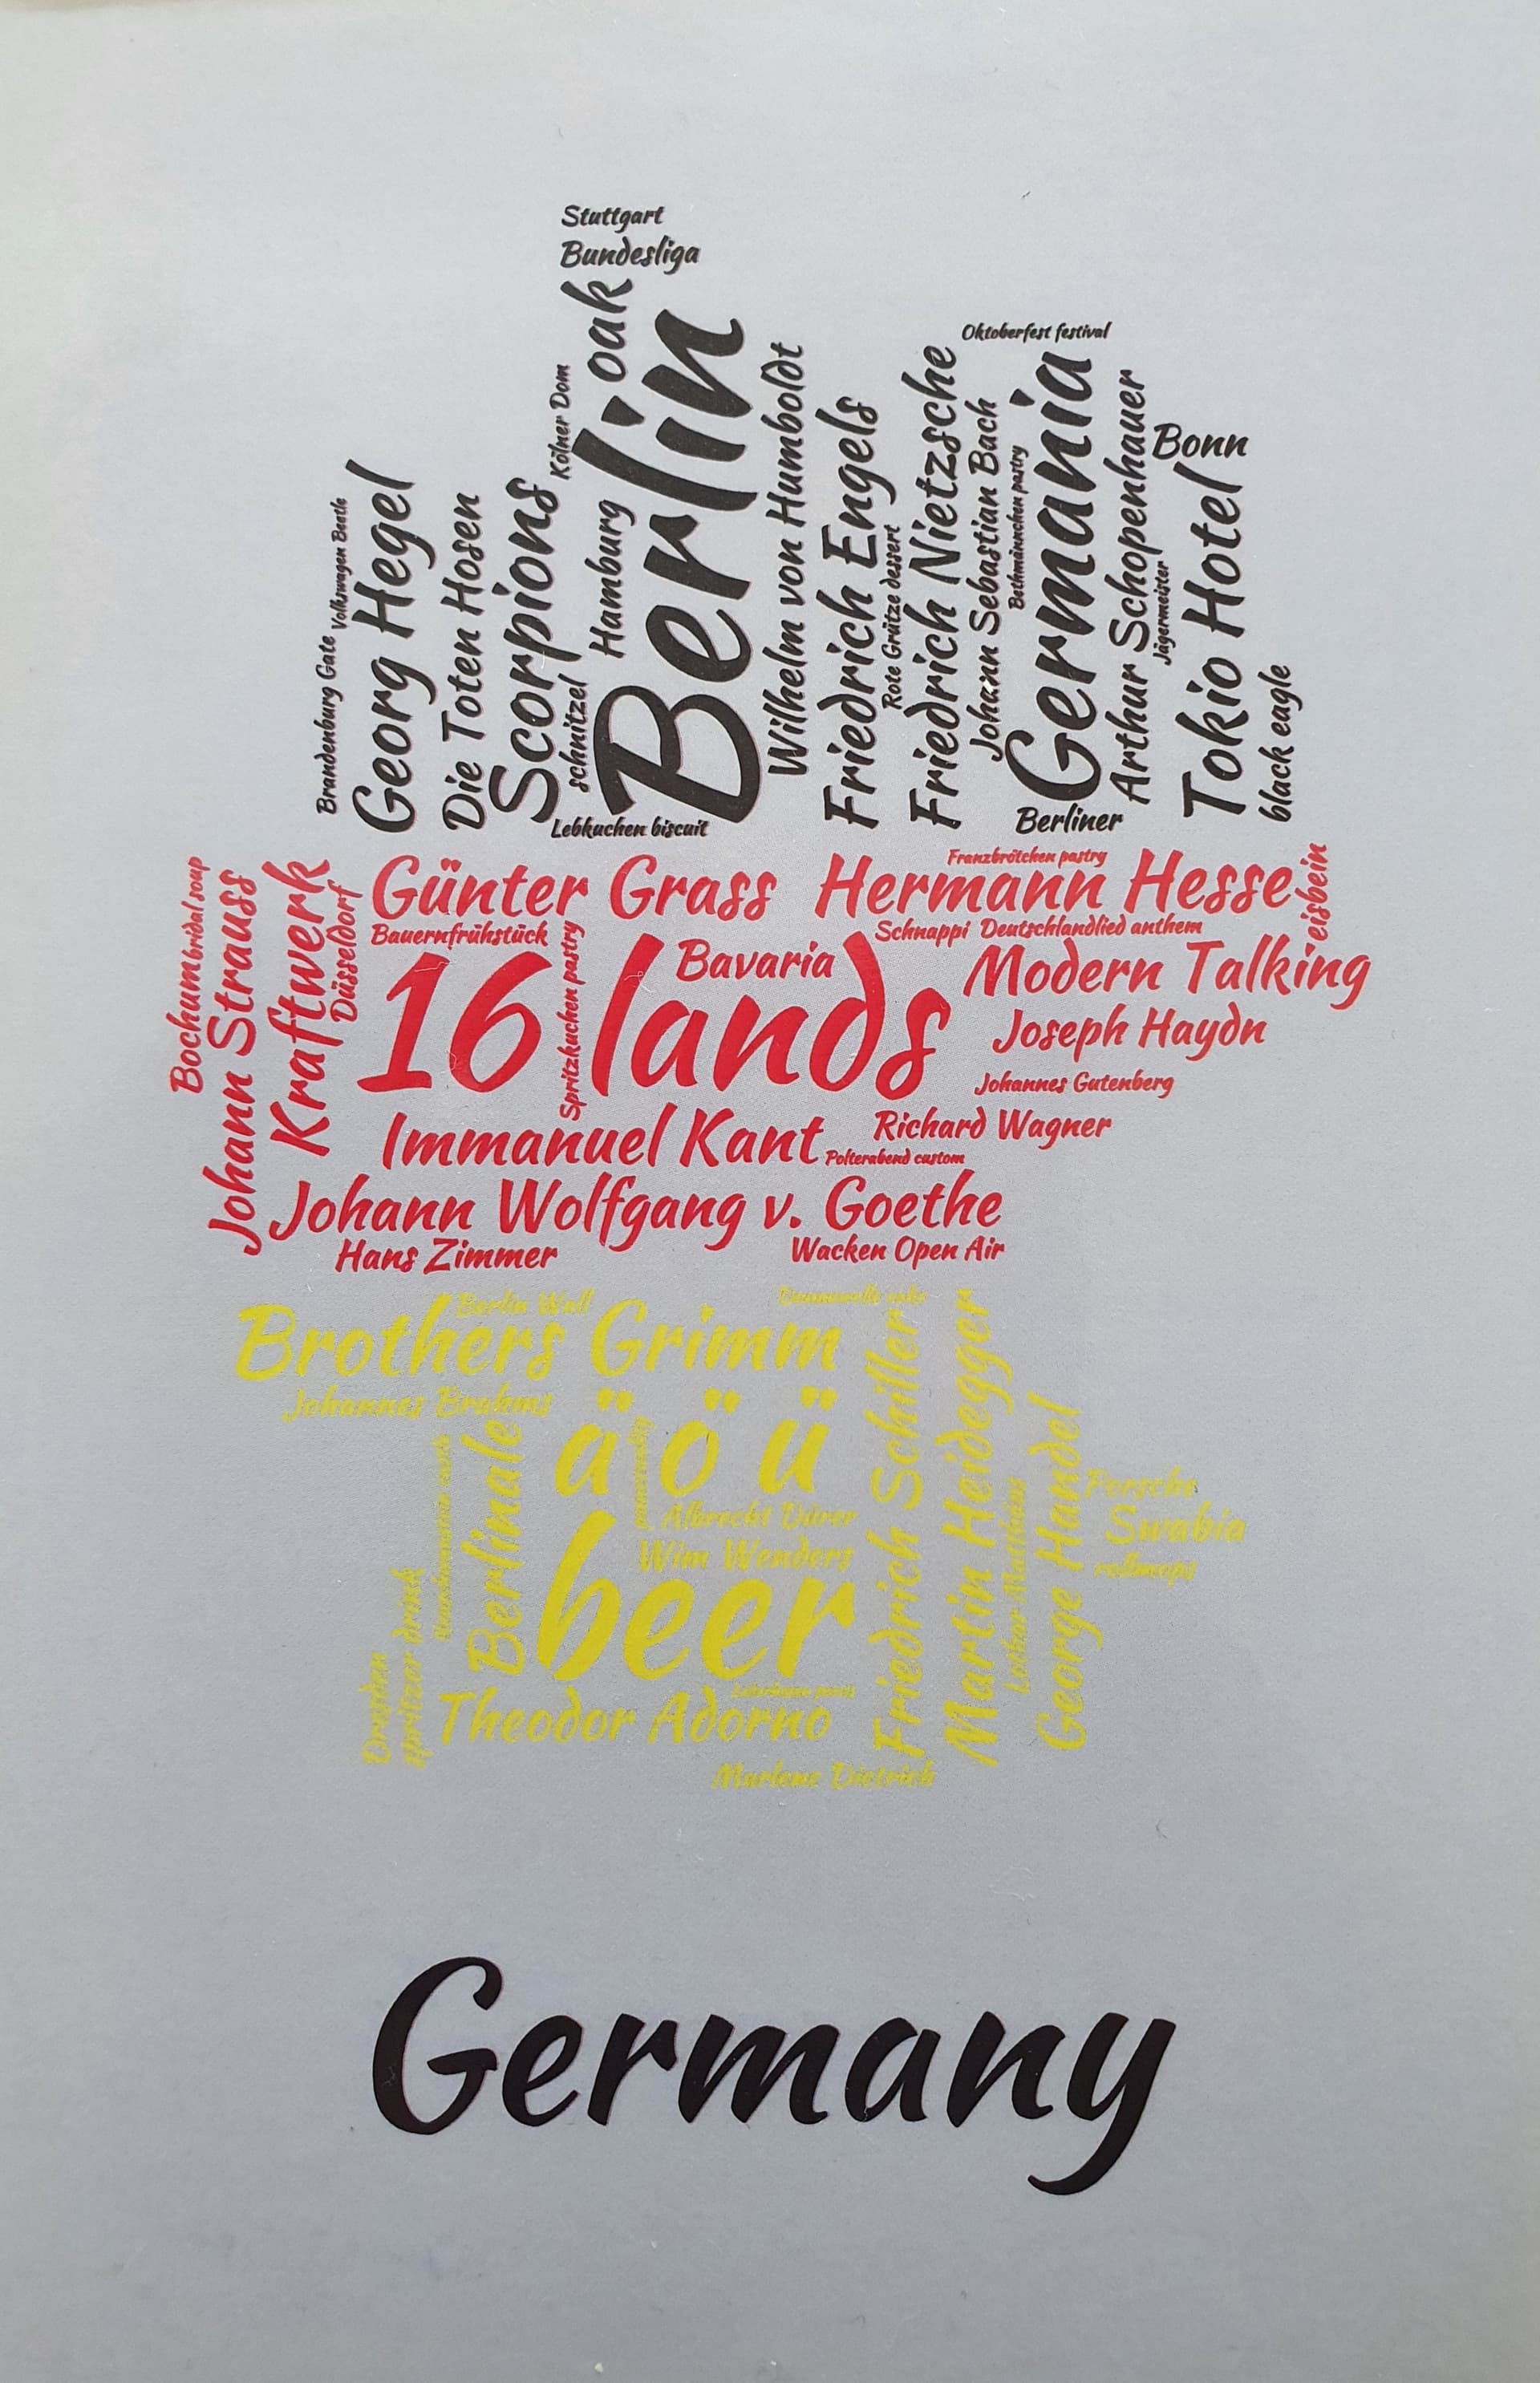 Stuttgart
Bundesliga
oak
Berlin
Kölner Dom
Hamburg
Oktoberfest festival
Wilhelm von Humboldt
Friedrich Engels
Rote Grütze dessert
Friedrich Nietzsche
Johann Sebastian Bach
Bethmännchen pastry
Germania
Arthur Schopenhauer
Jägermeister
Bonn
Tokio Hotel
black eagle
Brandenburg Gate
Volkswagen Beetle
Georg Hegel
Die Toten Hosen
Scorpions
schnitzel
Lebkuchen biscuit
Berliner
Bochum
bridal soup
Johann Strauss
Kraftwerk
Düsseldorf
Günter Grass
Franzbrötchen pastry
Hermann Hesse
eisbein
Bauernfrühstück
Spritzkuchen pastry
Schnappi
Deutschlandlied anthem
16 lands
Bavaria
Modern Talking
Joseph Haydn
Johannes Gutenberg
Immanuel Kant
Richard Wagner
Polterabend custom
Johann Wolfgang v. Goethe
Hans Zimmer
Wacken Open Air
Berlin Wall
Brothers Grimm
Johannes Brahms
ä ö ü
Berlinale
Albrecht Dürer
Wim Wenders
beer
Friedrich Schiller
Martin Heidegger
Lothar Matthäus
George Handel
Porsche
Swabia
rollmops
Dresden
spritzer drink
Theodor Adorno
Marlene Dietrich
Germany